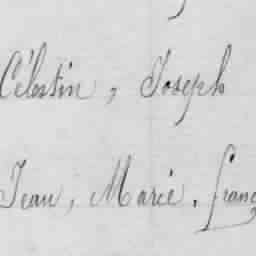 Célestin, Joseph
Jean, Marie, franç